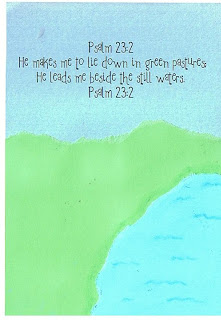 Psalm 23:2
He makes me to lie down in green pastures;
He leads me beside the still waters.
Psalm 23:2